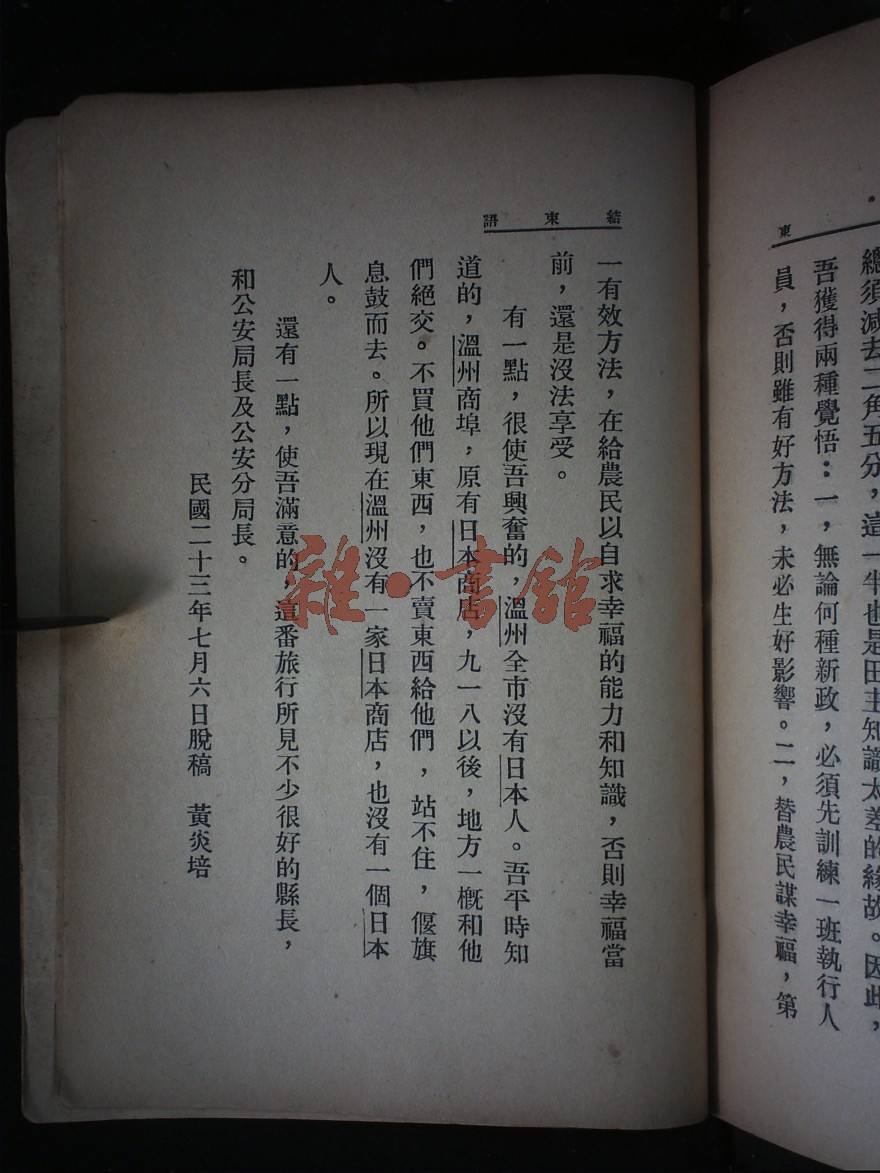 東
總須減去二角五分，這一半也是田主知識太差的緣故。因此，
吾獲得兩種覺悟：一，無論何種新政，必須先訓練一班執行人
員，否則雖有好方法，未必生好影響。二，替農民謀幸福，第
結束語
一有效方法，在給農民以自求幸福的能力和知識，否則幸福當
前，還是沒法享受。
有一點，很使吾興奮的，溫州全市沒有日本人。吾平時知
道的，溫州商埠，原有日本商店，九一八以後，地方一概和他
們絕交。不買他們東西，也不賣東西給他們，站不住，偃旗
息鼓而去。所以現在溫州沒有一家日本商店，也沒有一個日本
人。
還有一點，使吾滿意的，這番旅行所見不少很好的縣長，
和公安局長及公安分局長。
民國二十三年七月六日脫稿　黃炎培
雜·書館